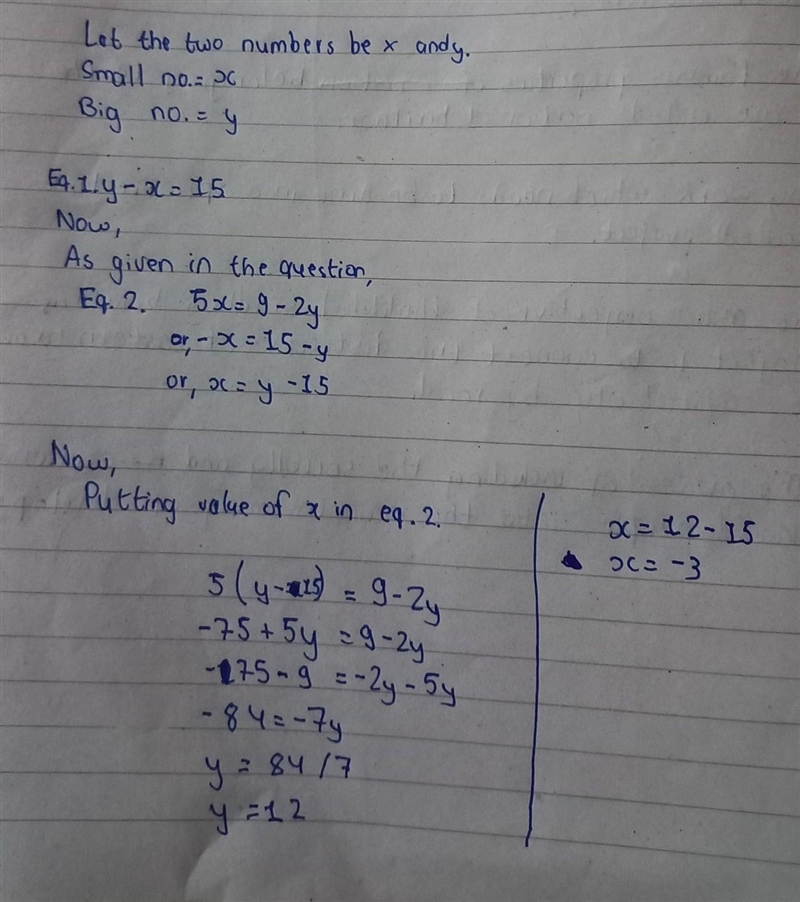 Let the two numbers be x and y.
Small no. = x
Big no. = y
Eq.1. y - x = 15
Now,
As given in the question,
Eq. 2. 5x = 9 - 2y
or, - x = 15 - y
or, x = y - 15
Now,
Putting value of x in eq. 2.
5(y - 15) = 9 - 2y
-75 + 5y = 9 - 2y
-75 - 9 = -2y - 5y
-84 = -7y
y = 84/7
y = 12
x = 12 - 15
x = -3